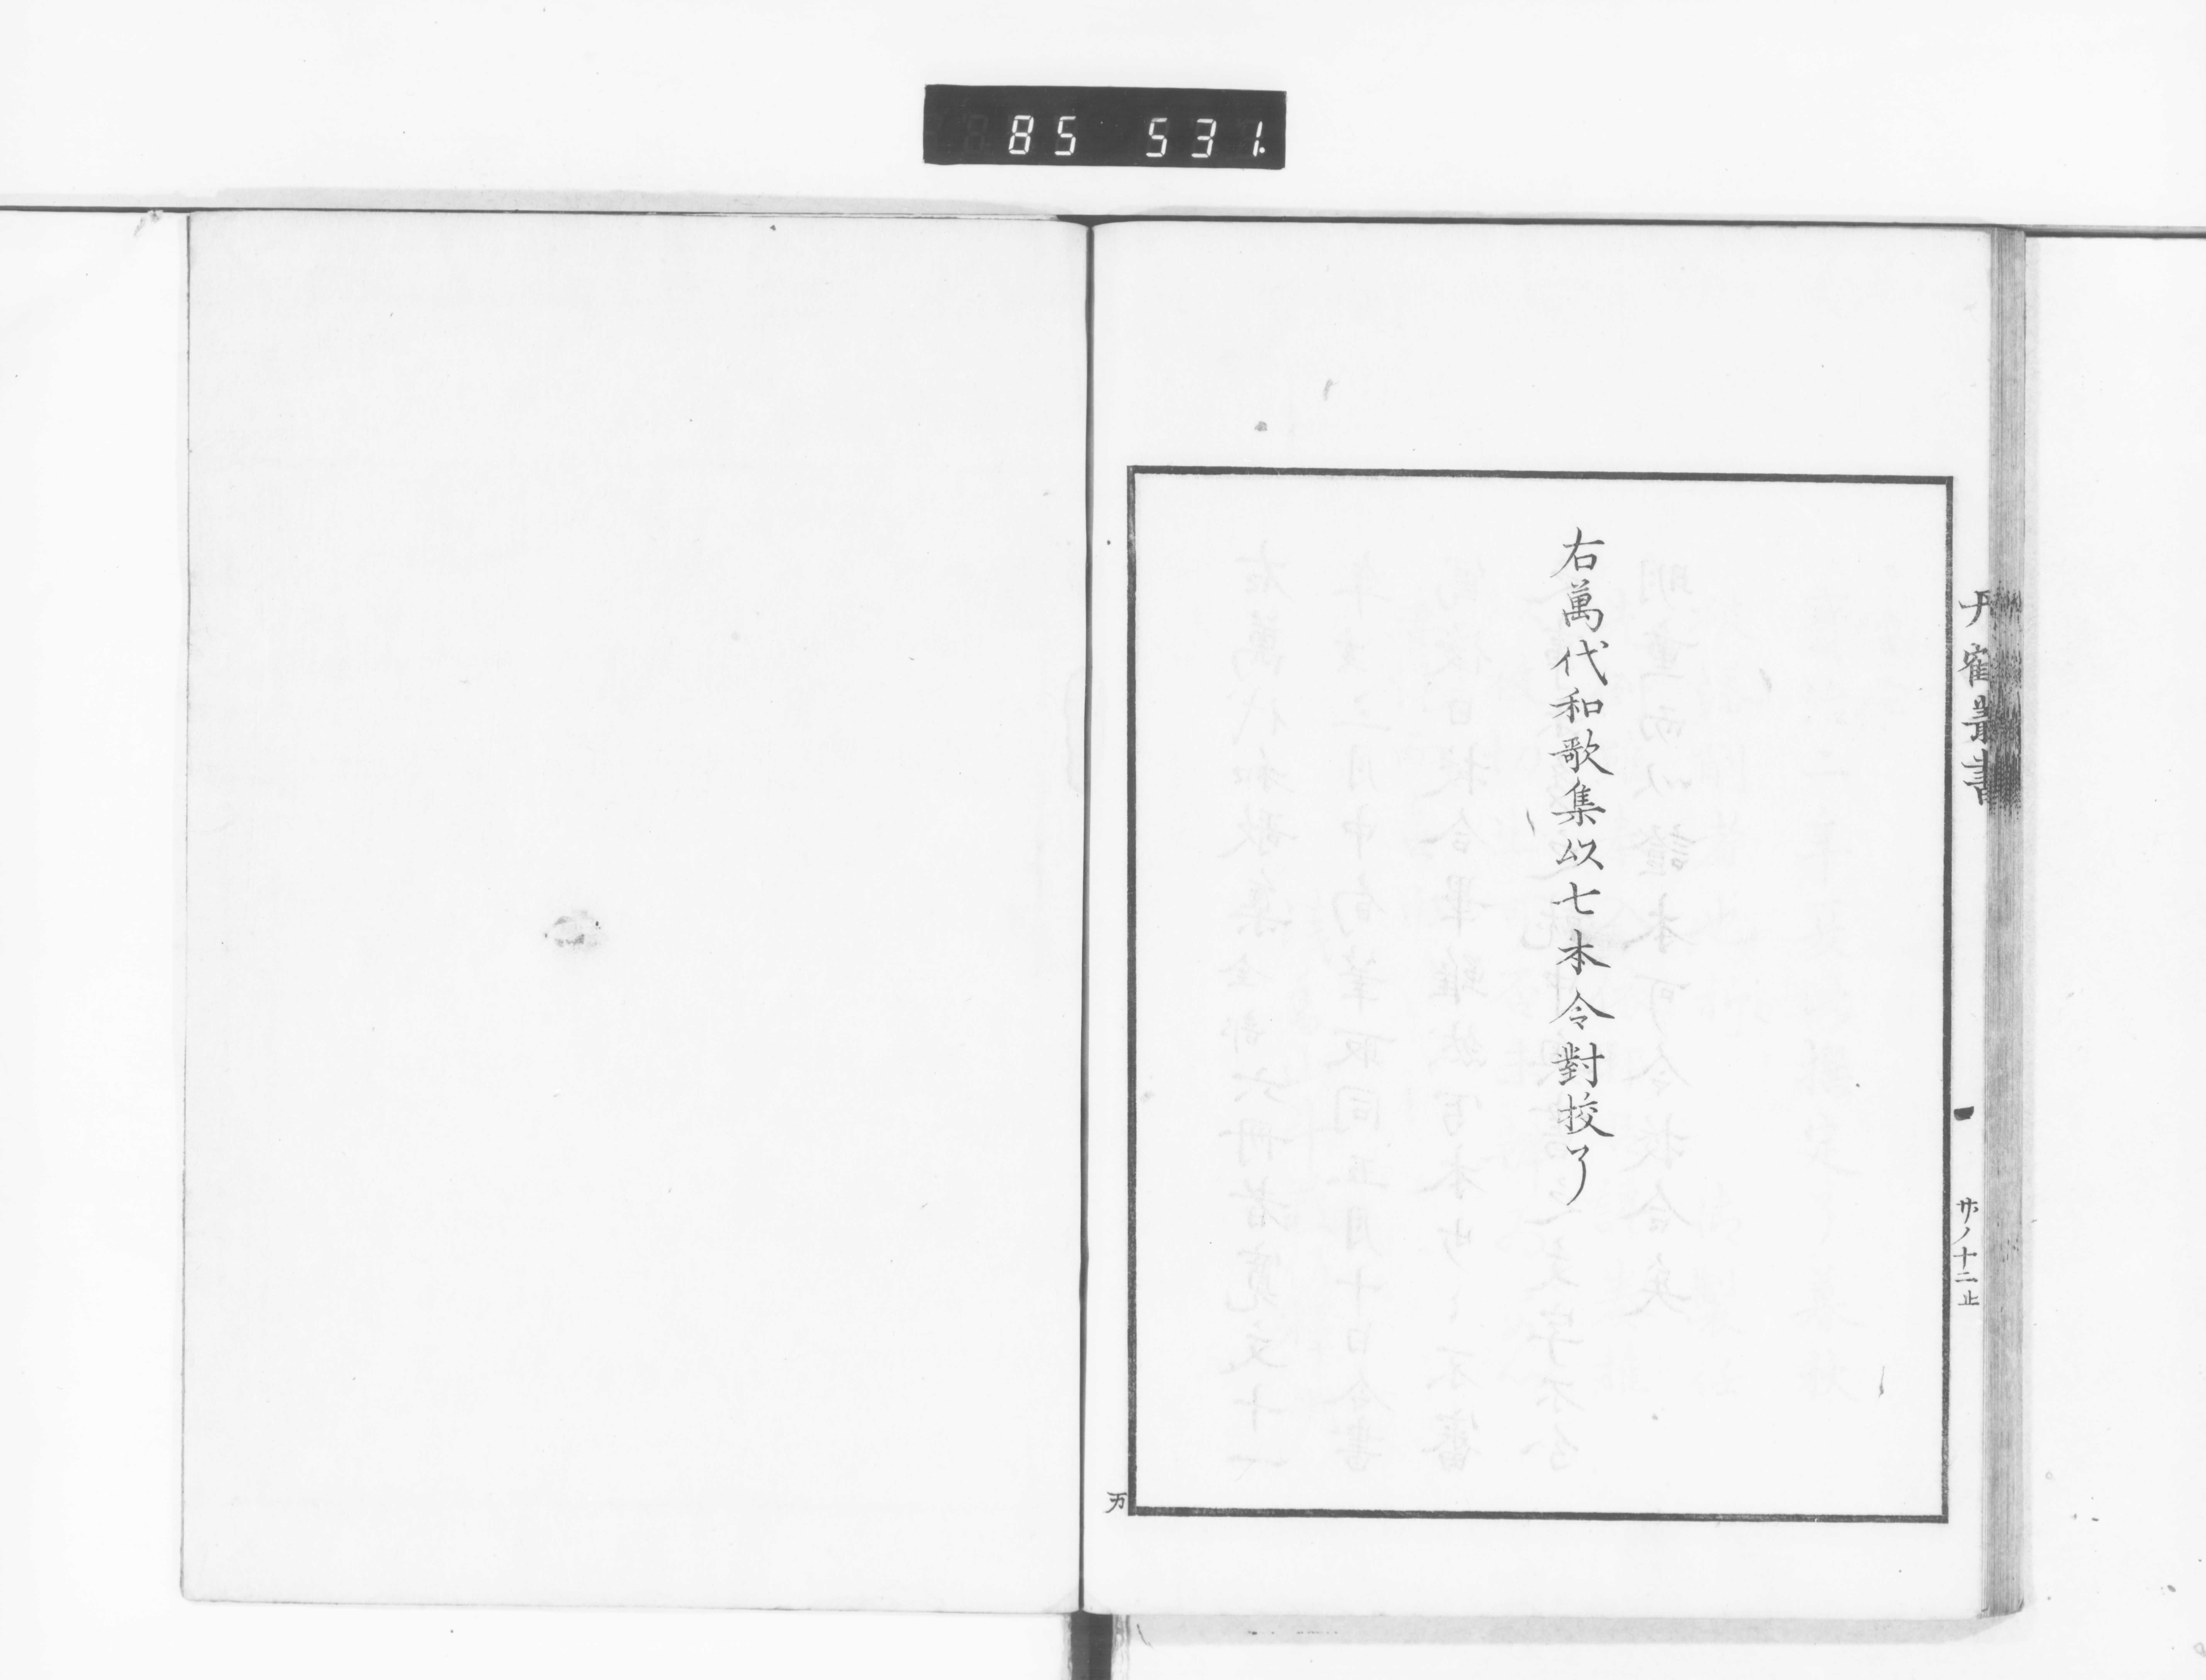 85 531.
丹鶴叢書
廿ノ十二止
右萬代和歌集以七本令對挍了